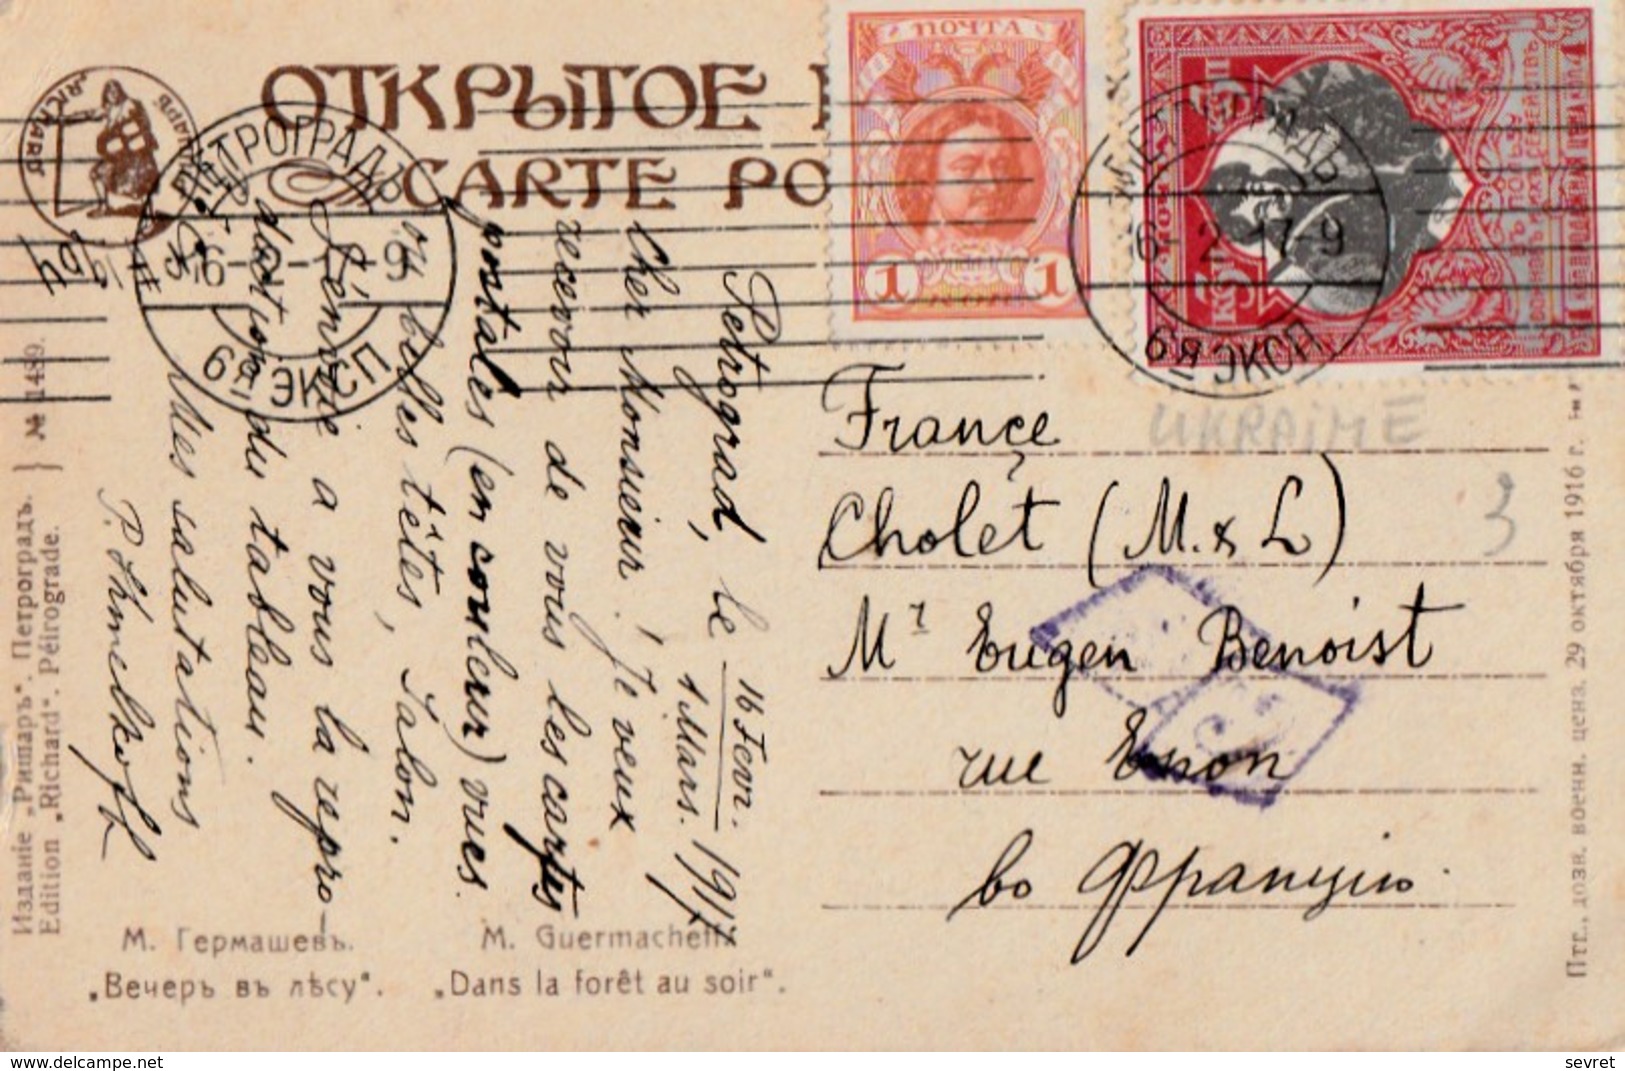 ОТКРЫТОЕ
CARTE PO
ПОЧТА
1 1
КОП
ПЕТРОГРАДЪ
6 2 17-9
6Я ЭКСП
„RICHARD“
Petrograd, le 16 Fevr. 1917
1 Mars.
Cher Monsieur! Je veux
recevoir de vous les cartes
postales (en couleur) vues
ou belles têtes, Salon.
J'envoie a vous la repro-
duct. du tableau.
Mes salutations
P. Khmelkoff
France
Cholet (M. & L)
Mr Eugen Benoist
rue Enon
во Францiю.
UKRAINE
3
М. Гермашевъ. M. Guermacheff.
„Вечеръ въ лѣсу“. „Dans la forêt au soir“.
Изданiе „Ришаръ“. Петроградъ.
Edition „Richard“. Pétrograde.
№ 1489.
Птг., дозв. военн. ценз. 29 октября 1916 г.
www.delcampe.net
sevret